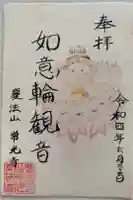 奉拝
令和四年六月三日
如意輪観音
慶法山 常光寺